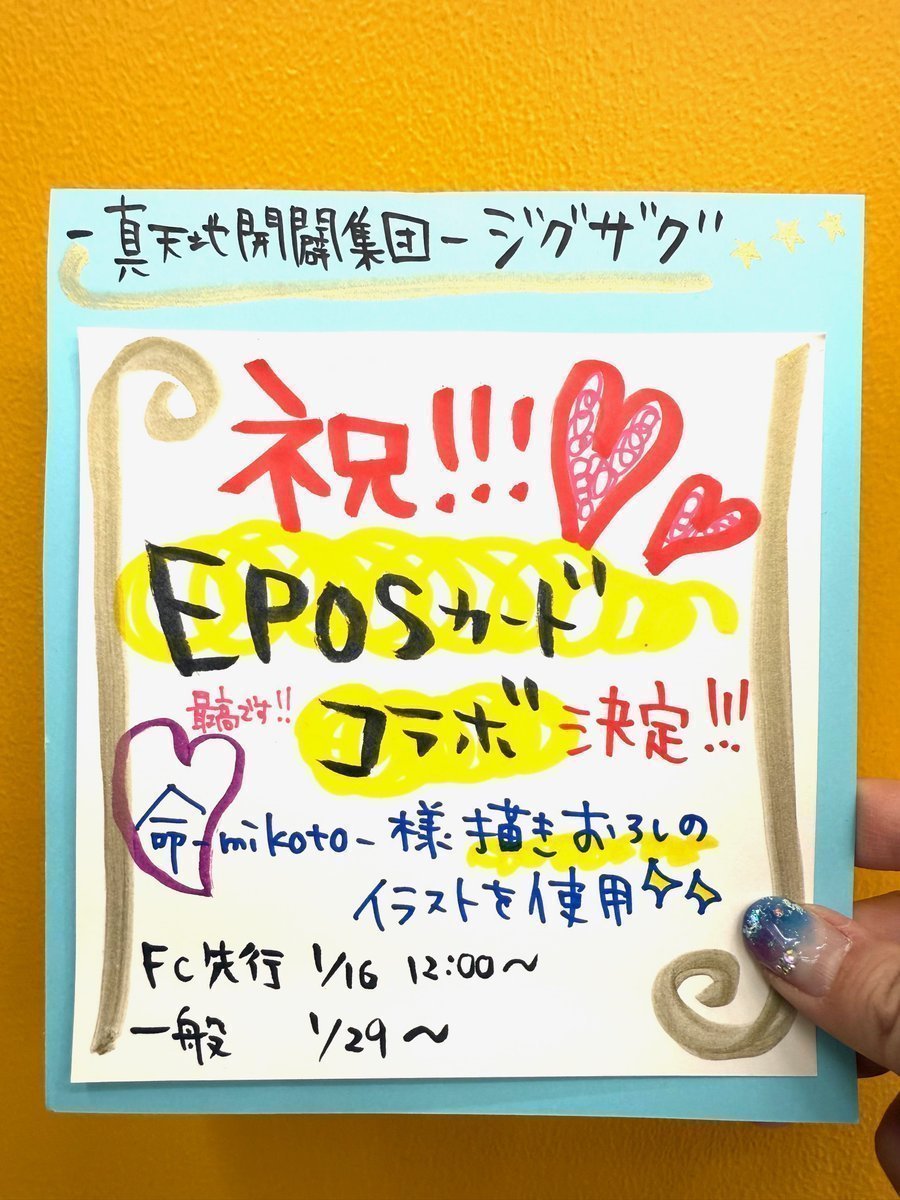 -真天地開闢集団-ジグザグ
祝!!!
EPOSカード
最高です!!
コラボ決定!!!
命-mikoto-様描きおろしの
イラストを使用
FC先行 1/16 12:00〜
一般 1/29〜